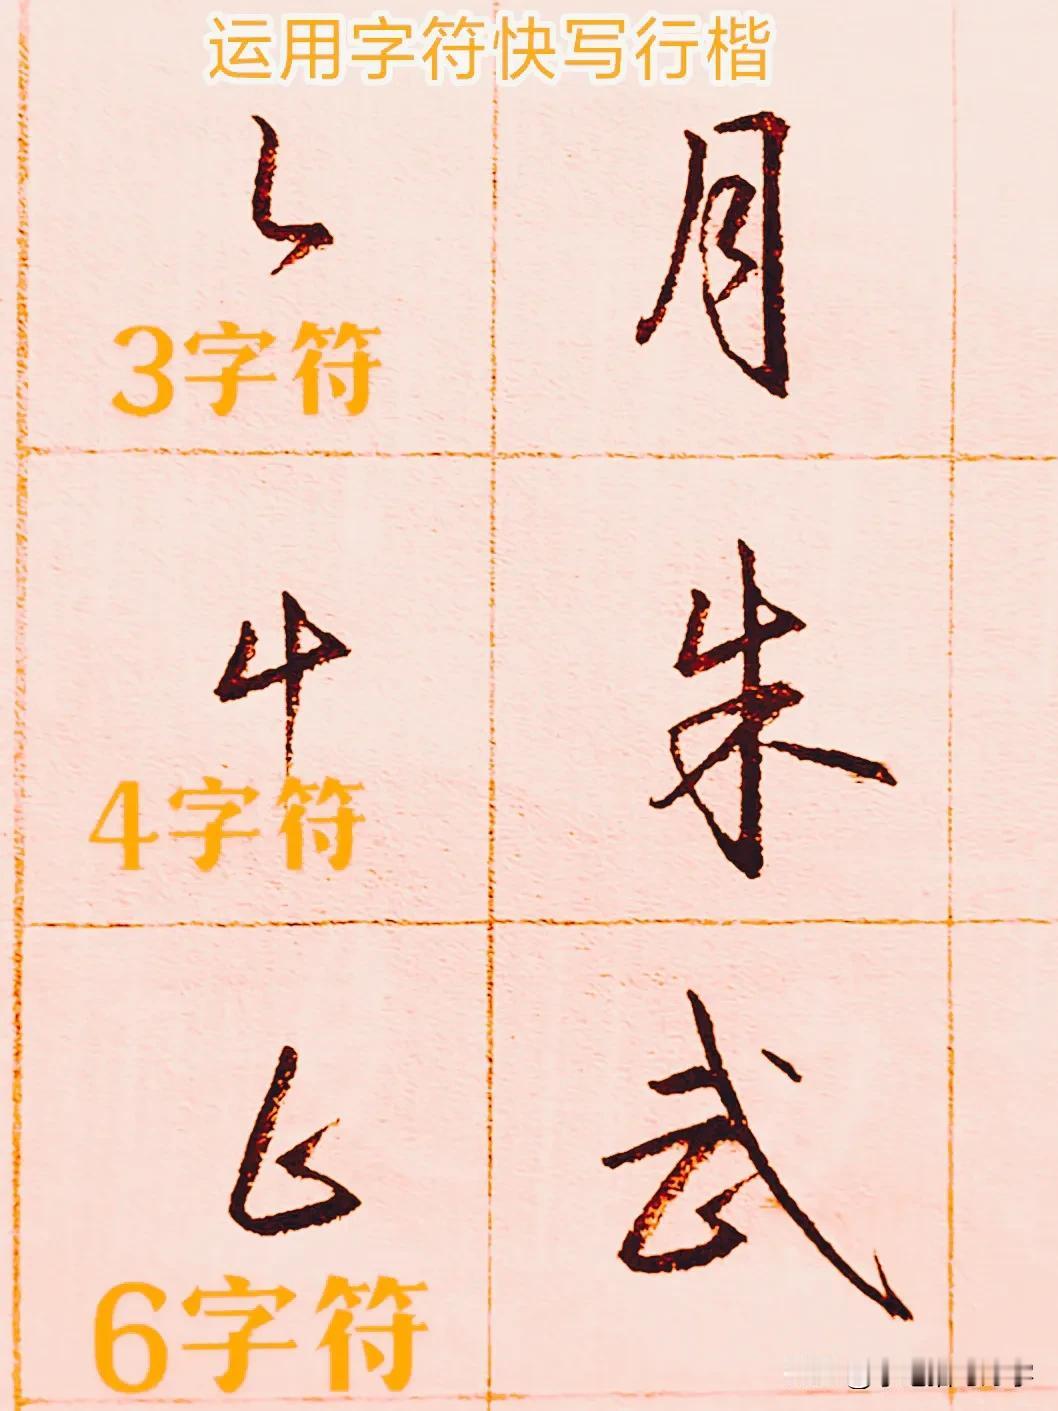 运用字符快写行楷
月
3字符
朱
4字符
武
6字符